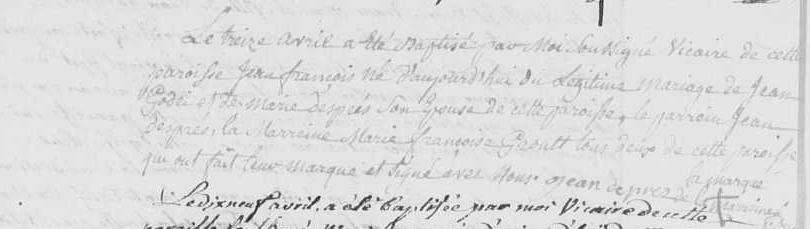 Le treize avril a été Baptisé par Moi Soussigné Vicaire de cette
paroisse Jean françois né d'aujourd'hui du Legitime mariage de Jean
et de Marie despres Son Epouse de cette paroisse, le parrein Jean
despres, la Marreine Marie françoise tous deux de cette paroisse
qui ont fait leur marque et Signé avec Nous Jean depres la marque
Le dix neuf avril, a été baptisée par moi Vicaire de cette